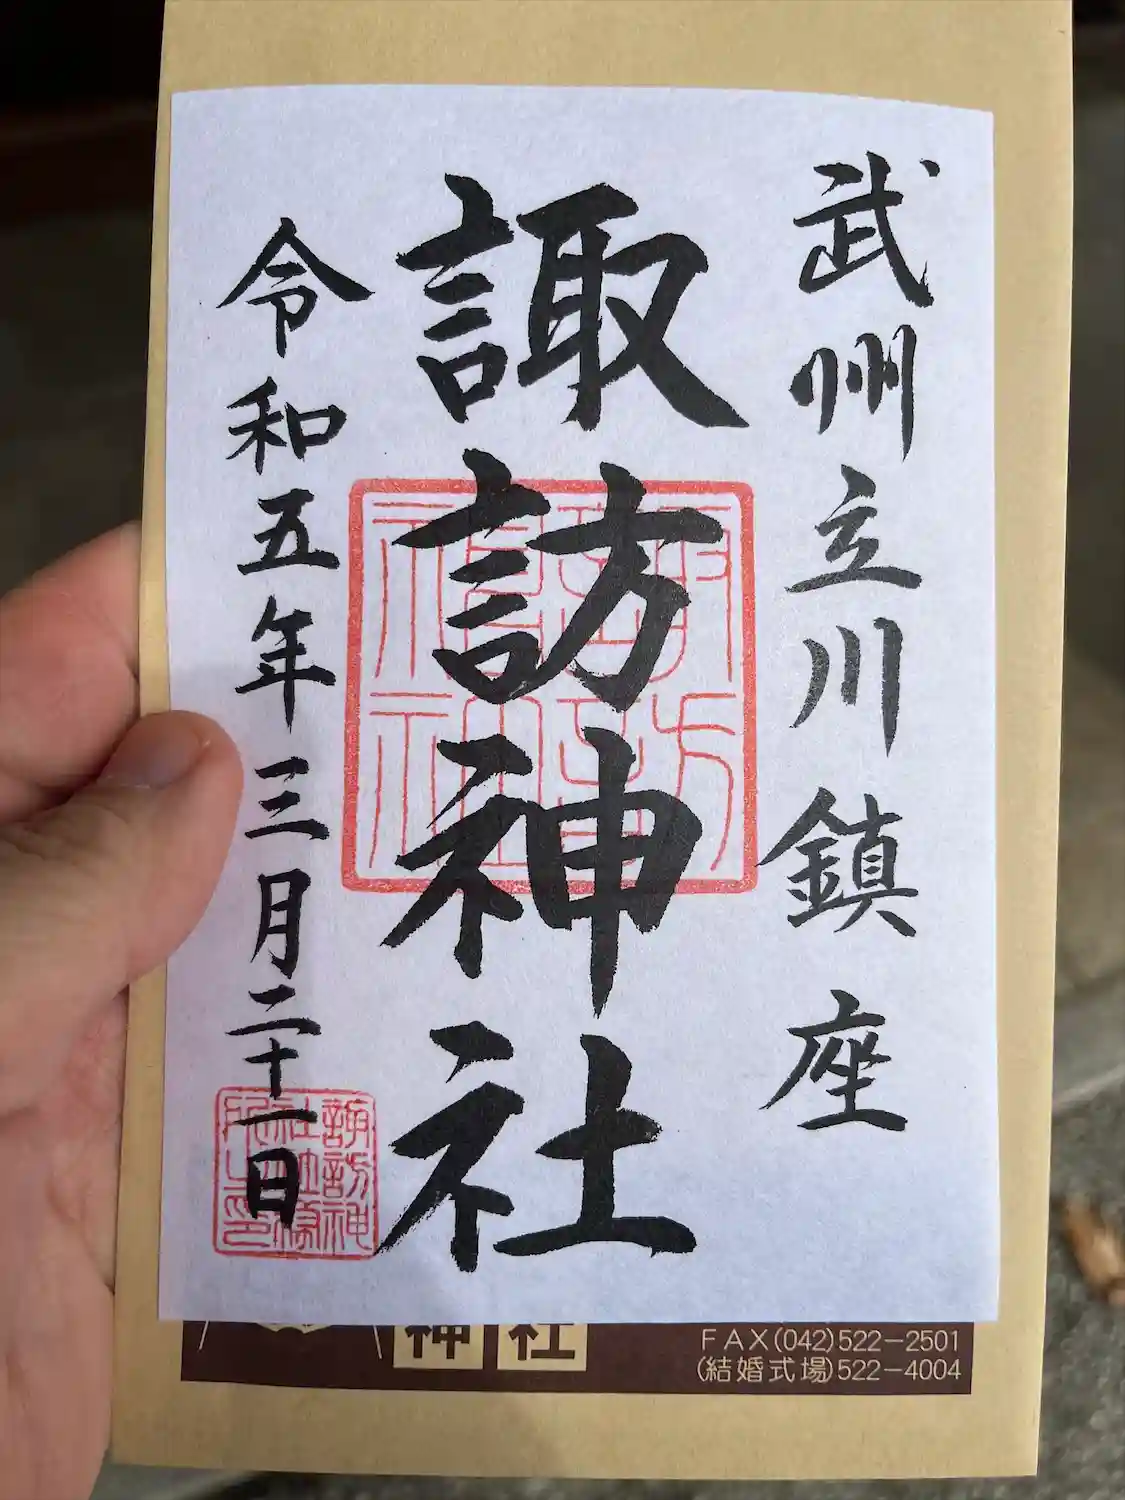 武州立川鎮座
諏訪神社
令和五年三月二十一日
諏訪神
神社
FAX(042)522-2501
(結婚式場)522-4004